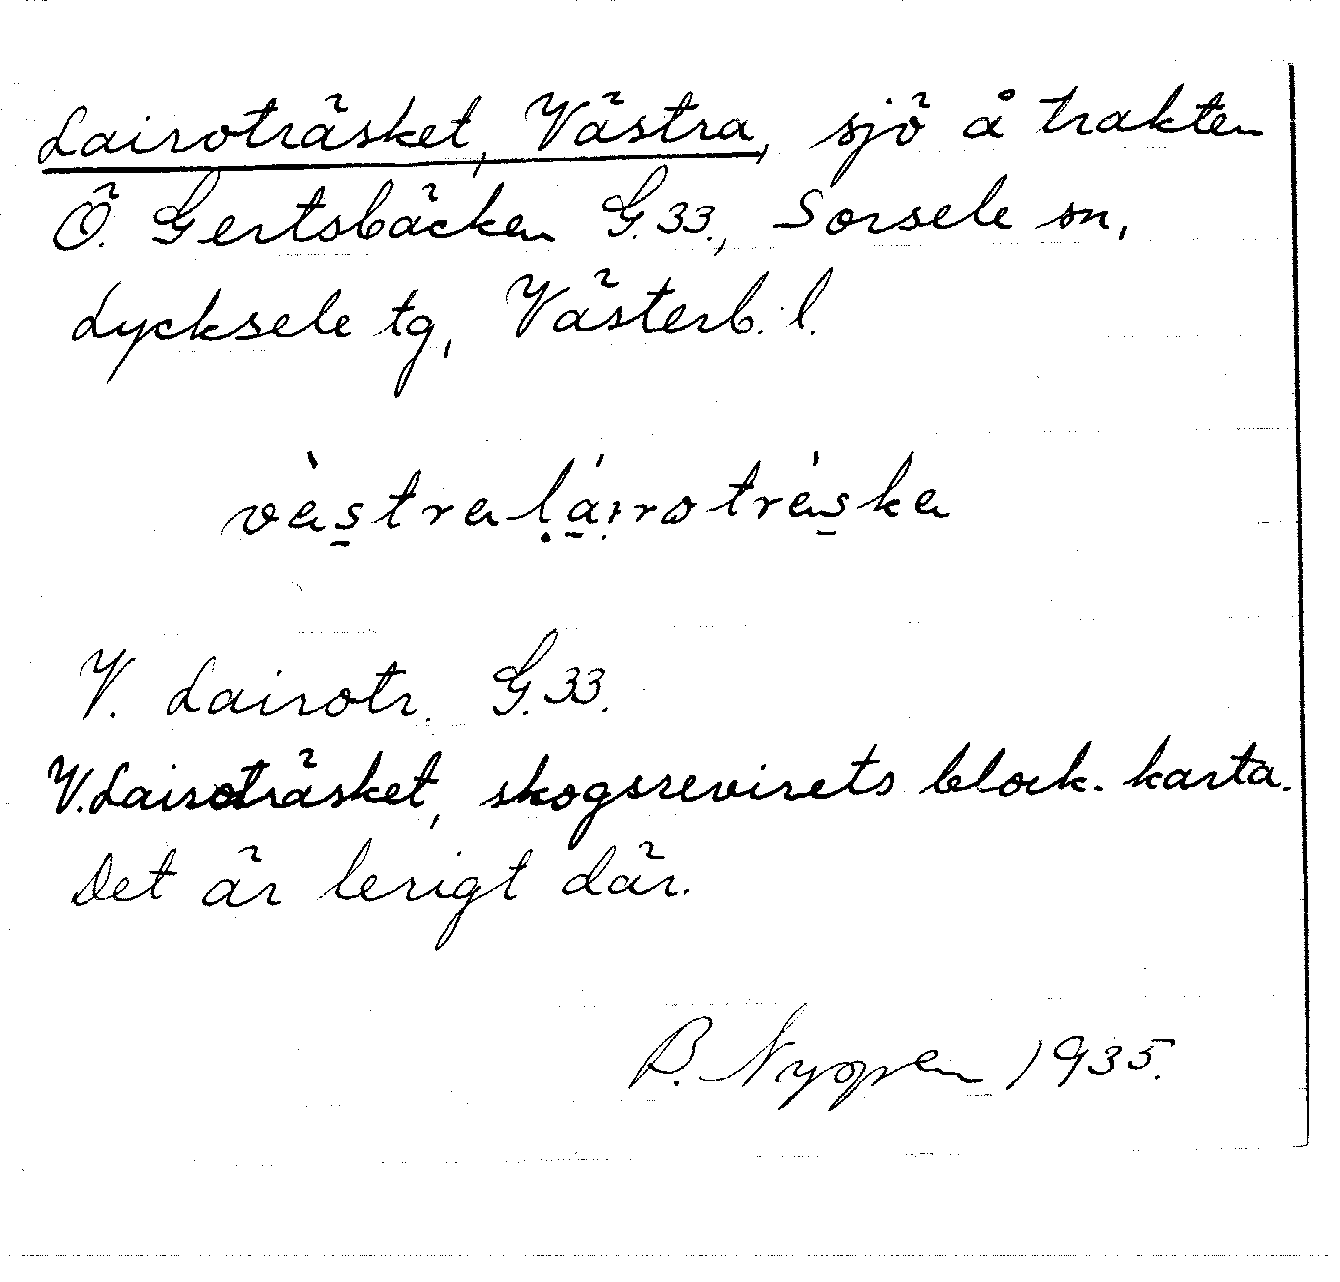 Lairoträsket, Västra, sjö å trakten
Ö. Gertsbäcken G.33., Sorsele sn,
Lycksele tg, Västerb. l.
västra lairoträska
V. Lairotr. G.33.
V. Lairoträsket, skogsrevirets block. karta.
Det är lerigt där.
B. 1935.